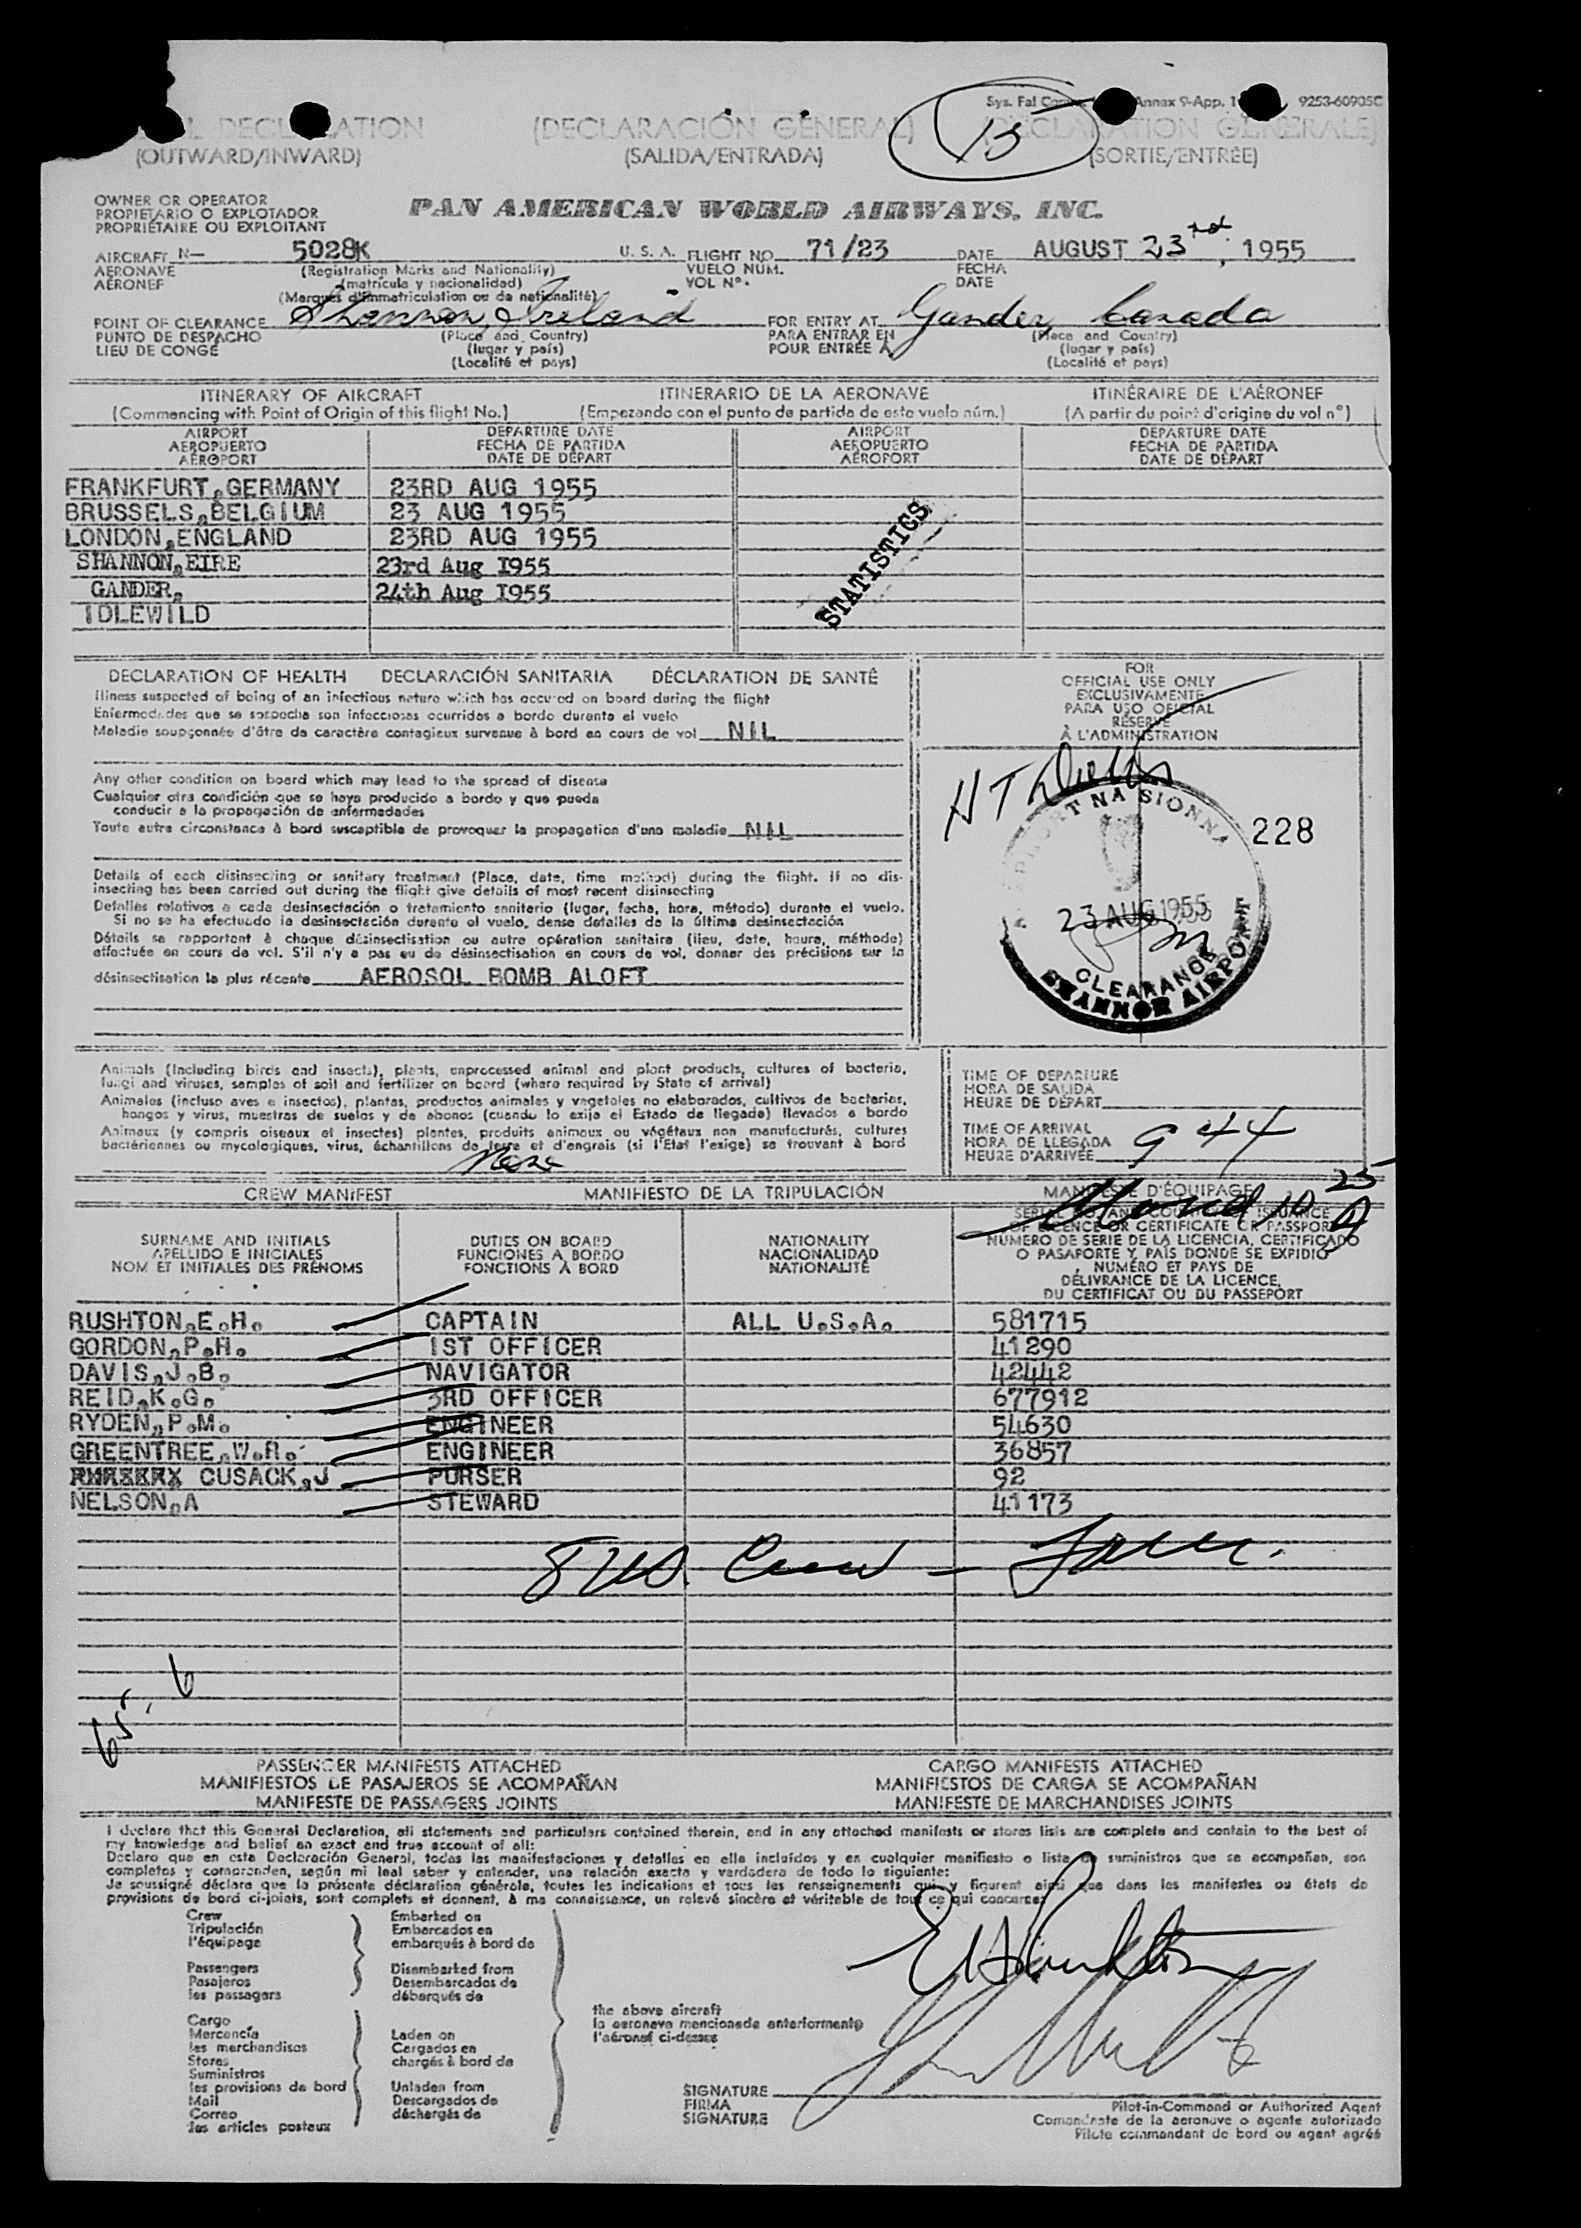 Sys. Fal Annex 9-App. 1 9253-60905C
L DECL ATION (DECLARACIÓN GENERAL) (DECLARATION GÉNÉRALE)
15
(OUTWARD/INWARD) (SALIDA/ENTRADA) (SORTIE/ENTRÉE)
OWNER OR OPERATOR
PROPIETARIO O EXPLOTADOR
PROPRIÉTAIRE OU EXPLOITANT
PAN AMERICAN WORLD AIRWAYS, INC.
AIRCRAFT N- 5028K U. S. A. FLIGHT NO 71/23 DATE AUGUST 23rd, 1955
AERONAVE (Registration Marks and Nationality) VUELO NÚM. FECHA
AÉRONEF (matrícula y nacionalidad) VOL Nº. DATE
(Marques d'immatriculation ou de nationalité)
POINT OF CLEARANCE Shannon, Ireland FOR ENTRY AT Gander, Canada
PUNTO DE DESPACHO (Place and Country) PARA ENTRAR EN (Place and Country)
LIEU DE CONGÉ (lugar y país) POUR ENTRÉE À (lugar y país)
(Localité et pays) (Localité et pays)
ITINERARY OF AIRCRAFT ITINERARIO DE LA AERONAVE ITINÉRAIRE DE L'AÉRONEF
(Commencing with Point of Origin of this flight No.) (Empezando con el punto de partida de este vuelo núm.) (A partir du point d'origine du vol nº)
AIRPORT DEPARTURE DATE AIRPORT DEPARTURE DATE
AEROPUERTO FECHA DE PARTIDA AEROPUERTO FECHA DE PARTIDA
AÉROPORT DATE DE DÉPART AÉROPORT DATE DE DÉPART
FRANKFURT,GERMANY 23RD AUG 1955
BRUSSELS,BELGIUM 23 AUG 1955
LONDON,ENGLAND 23RD AUG 1955
SHANNON,EIRE 23rd Aug 1955
GANDER, 24th Aug 1955
IDLEWILD
STATISTICS
DECLARATION OF HEALTH DECLARACIÓN SANITARIA DÉCLARATION DE SANTÉ
Illness suspected of being of an infectious nature which has occured on board during the flight
Enfermedades que se sospecha son infecciosas ocurridas a bordo durante el vuelo
Maladie soupçonnée d'être de caractère contagieux survenue à bord en cours de vol NIL
Any other condition on board which may lead to the spread of disease
Cualquier otra condición que se haya producido a bordo y que pueda
conducir a la propagación de enfermedades
Toute autre circonstance à bord susceptible de provoquer la propagation d'une maladie NIL
Details of each disinsecting or sanitary treatment (Place, date, time method) during the flight. If no dis-
insecting has been carried out during the flight give details of most recent disinsecting
Detalles relativos a cada desinsectación o tratamiento sanitario (lugar, fecha, hora, método) durante el vuelo.
Si no se ha efectuado la desinsectación durante el vuelo, dense detalles de la última desinsectación
Détails se rapportant à chaque désinsectisation ou autre opération sanitaire (lieu, date, heure, méthode)
effectuée en cours de vol. S'il n'y a pas eu de désinsectisation en cours de vol, donner des précisions sur la
désinsectisation la plus récente AEROSOL BOMB ALOFT
FOR
OFFICIAL USE ONLY
EXCLUSIVAMENTE
PARA USO OFICIAL
RÉSERVÉ
À L'ADMINISTRATION
228
NA SIONNA
23 AUG 1955
CLEARANCE
SHANNON AIRPORT
Animals (Including birds and insects), plants, unprocessed animal and plant products, cultures of bacteria,
fungi and viruses, samples of soil and fertilizer on board (where required by State of arrival)
Animales (incluso aves e insectos), plantas, productos animales y vegetales no elaborados, cultivos de bacterias,
hongos y virus, muestras de suelos y de abonos (cuando lo exija el Estado de llegada) llevados a bordo
Animaux (y compris oiseaux et insectes) plantes, produits animaux ou végétaux non manufacturés, cultures
bactériennes ou mycologiques, virus, échantillons de terre et d'engrais (si l'État l'exige) se trouvant à bord
None
TIME OF DEPARTURE
HORA DE SALIDA
HEURE DE DÉPART
TIME OF ARRIVAL
HORA DE LLEGADA
HEURE D'ARRIVÉE 9 44
25
CREW MANIFEST MANIFIESTO DE LA TRIPULACIÓN MANIFESTE D'ÉQUIPAGE
SURNAME AND INITIALS DUTIES ON BOARD NATIONALITY SERIAL NO. AND COUNTRY OF ISSUANCE
APELLIDO E INICIALES FUNCIONES A BORDO NACIONALIDAD OF LICENCE OR CERTIFICATE OR PASSPORT
NOM ET INITIALES DES PRÉNOMS FONCTIONS À BORD NATIONALITÉ NÚMERO DE SERIE DE LA LICENCIA, CERTIFICADO
O PASAPORTE Y PAÍS DONDE SE EXPIDIÓ
NUMÉRO ET PAYS DE
DÉLIVRANCE DE LA LICENCE,
DU CERTIFICAT OU DU PASSEPORT
RUSHTON,E.H. CAPTAIN ALL U.S.A. 581715
GORDON,P.H. 1ST OFFICER 41290
DAVIS,J.B. NAVIGATOR 42442
REID,K.G. 3RD OFFICER 677912
RYDEN,P.M. ENGINEER 54630
GREENTREE,W.R. ENGINEER 36857
CUSACK,J PURSER 92
NELSON,A STEWARD 41173
8 US. Crew -
65, 6
PASSENGER MANIFESTS ATTACHED CARGO MANIFESTS ATTACHED
MANIFIESTOS DE PASAJEROS SE ACOMPAÑAN MANIFIESTOS DE CARGA SE ACOMPAÑAN
MANIFESTE DE PASSAGERS JOINTS MANIFESTE DE MARCHANDISES JOINTS
I declare that this General Declaration, all statements and particulars contained therein, and in any attached manifests or stores lists are complete and contain to the best of
my knowledge and belief an exact and true account of all:
Declaro que en esta Declaración General, todas las manifestaciones y detalles en ella incluídos y en cualquier manifiesto o lista de suministros que se acompañan, son
completos y comprenden, según mi leal saber y entender, una relación exacta y verdadera de todo lo siguiente:
Je soussigné déclare que la présente déclaration générale, toutes les indications et tous les renseignements qui y figurent ainsi que dans les manifestes ou états de
provisions de bord ci-joints, sont complets et donnent, à ma connaissance, un relevé sincère et véritable de tout ce qui concerne:
Crew Embarked on
Tripulación Embarcados en
l'équipage embarqués à bord de
Passengers Disembarked from
Pasajeros Desembarcados de
les passagers débarqués de
Cargo
Mercancía Laden on
les marchandises Cargados en
Stores chargés à bord de
Suministros
les provisions de bord Unladen from
Mail Descargados de
Correo déchargés de
les articles postaux
the above aircraft
la aeronave mencionada anteriormente
l'aéronef ci-dessus
EH Rushton
SIGNATURE
FIRMA
SIGNATURE
Pilot-in-Command or Authorized Agent
Comandante de la aeronave o agente autorizado
Pilote commandant de bord ou agent agréé